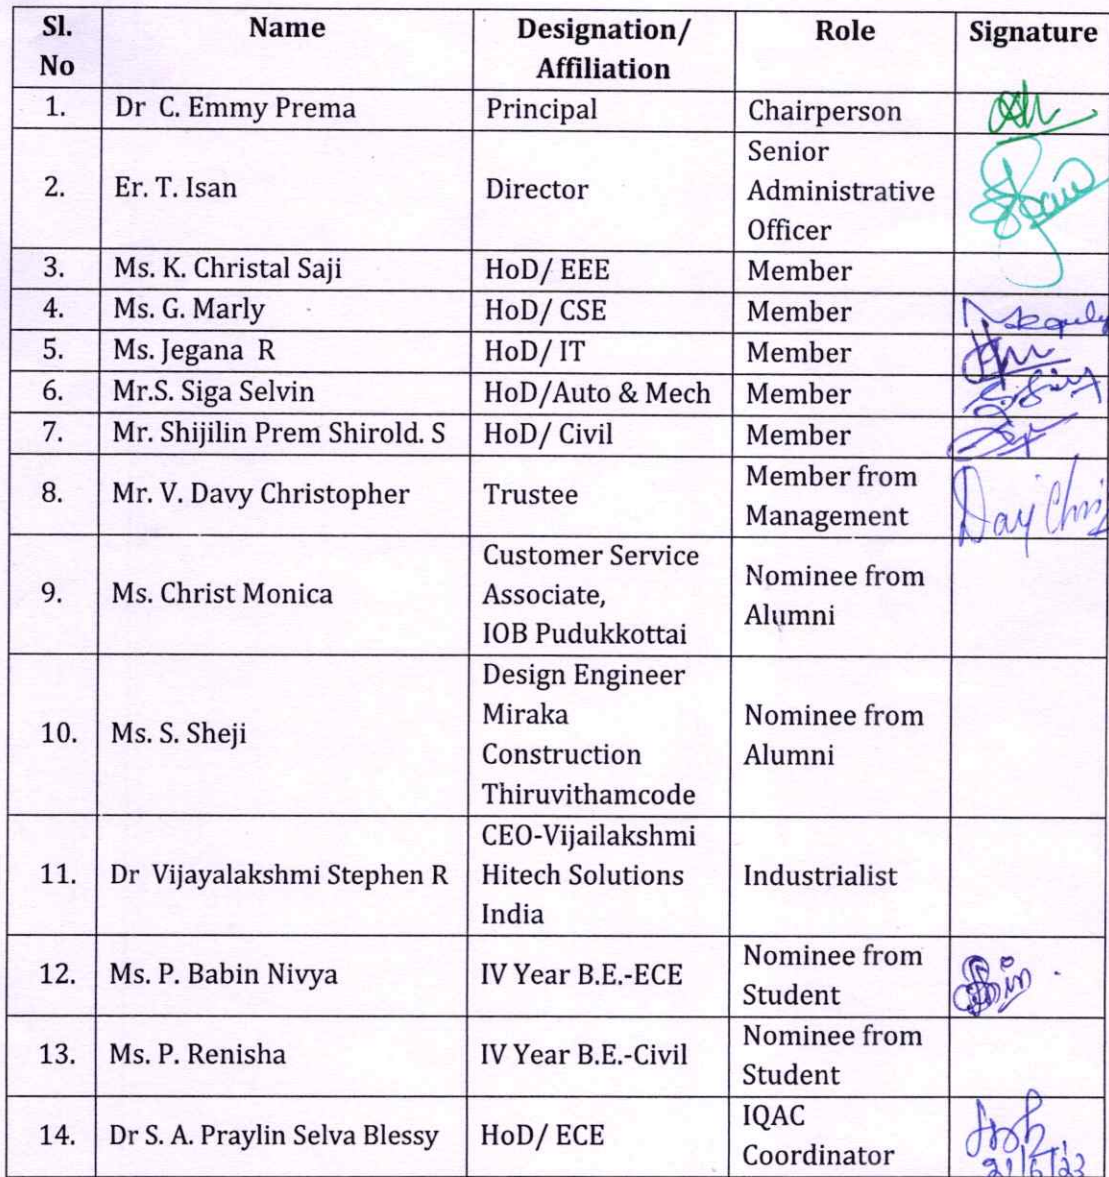 Sl. No Name Designation/ Affiliation Role Signature
1. Dr C. Emmy Prema Principal Chairperson
2. Er. T. Isan Director Senior Administrative Officer
3. Ms. K. Christal Saji HoD/ EEE Member
4. Ms. G. Marly HoD/ CSE Member
5. Ms. Jegana R HoD/ IT Member
6. Mr.S. Siga Selvin HoD/Auto & Mech Member
7. Mr. Shijilin Prem Shirold. S HoD/ Civil Member
8. Mr. V. Davy Christopher Trustee Member from Management
9. Ms. Christ Monica Customer Service Associate, IOB Pudukkottai Nominee from Alumni
10. Ms. S. Sheji Design Engineer Miraka Construction Thiruvithamcode Nominee from Alumni
11. Dr Vijayalakshmi Stephen R CEO-Vijailakshmi Hitech Solutions India Industrialist
12. Ms. P. Babin Nivya IV Year B.E.-ECE Nominee from Student
13. Ms. P. Renisha IV Year B.E.-Civil Nominee from Student
14. Dr S. A. Praylin Selva Blessy HoD/ ECE IQAC Coordinator